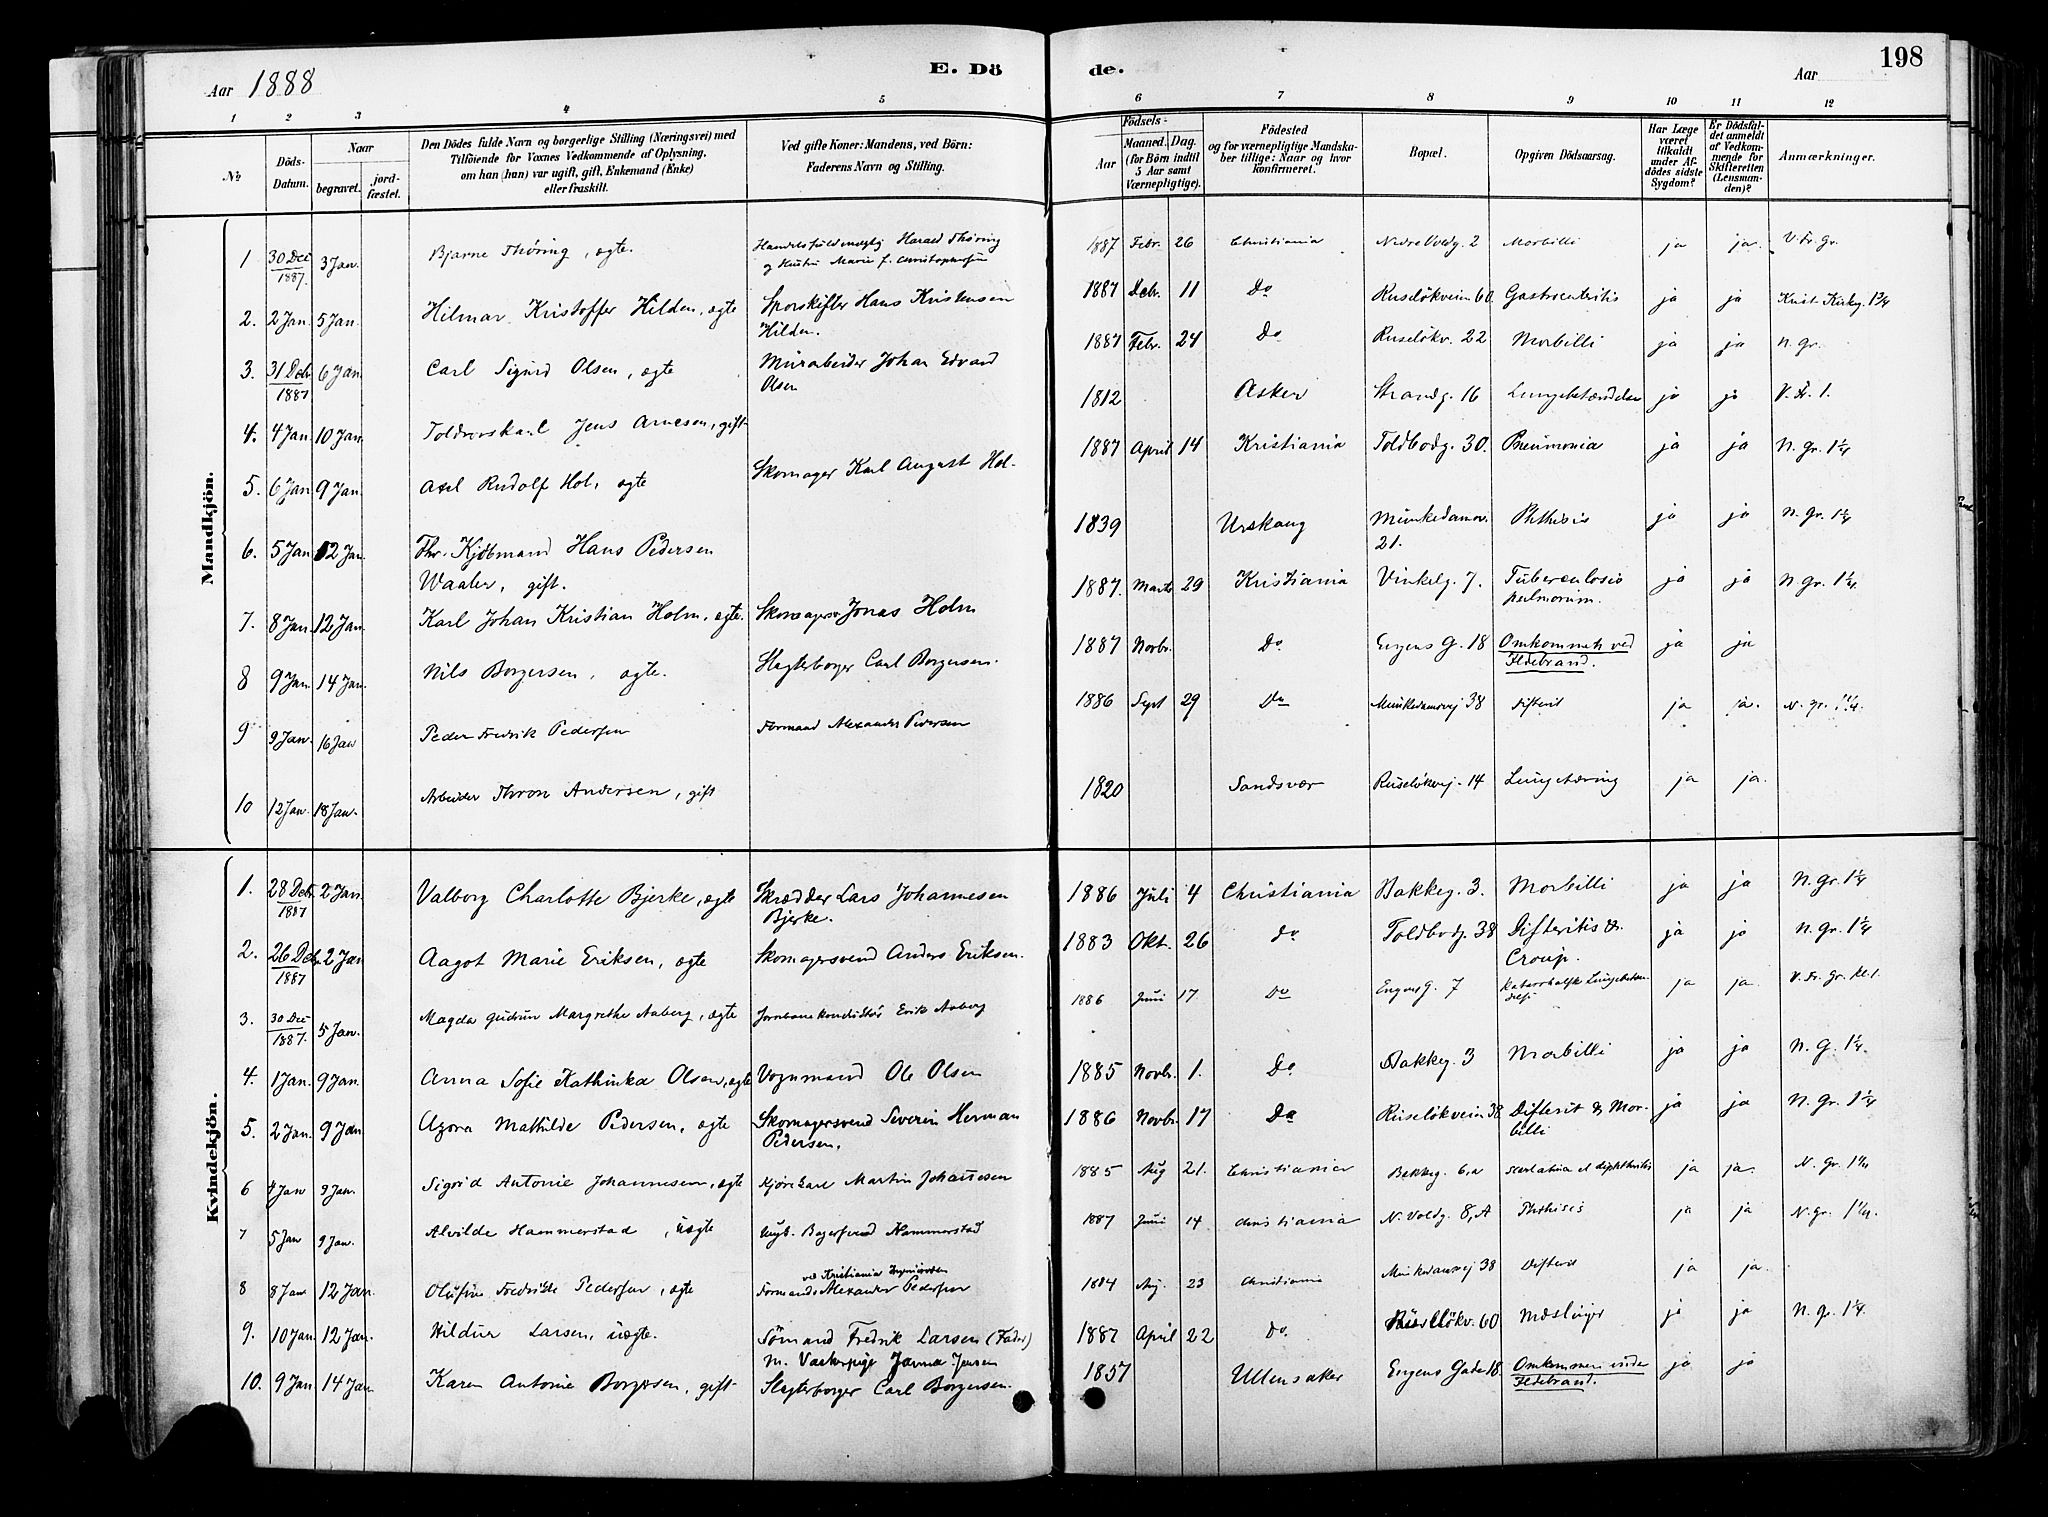 Aar 1888
E. Döde.
Aar
198
1 2 3 4 5 6 7 8 9 10 11 12
№
Döds-Datum.
Naar
begravet.
jord-fæstet.
Den Dödes fulde Navn og borgerlige Stilling (Næringsvei) med
Tilföiende for Voxnes Vedkommende af Oplysning,
om han (hun) var ugift, gift, Enkemand (Enke)
eller fraskilt.
Ved gifte Koner: Mandens, ved Börn:
Faderens Navn og Stilling.
Födsels-
Aar
Maaned. Dag.
(for Börn indtil
5 Aar samt
Værnepligtige).
Födested
og for værnepligtige Mandska-
ber tillige: Naar og hvor
konfirmeret.
Bopæl.
Opgiven Dödsaarsag.
Har Læge
været
tilkaldt
under Af-
dödes sidste
Sygdom?
Er Dödsfal-
det anmeldt
af Vedkom-
mende for
Skifteretten
(Lensman-
den)?
Anmærkninger.
Mandkjön.
1 30 Dec 1887. 3 Jan. Bjarne Thøring, ægte. Handelsfuldmægtig Harald Thøring og Hustru Marie f. Christophersen 1887 Febr. 26 Christiania Nedre Voldg. 2 Morbilli ja ja. V. Fr. Gr.
2. 2 Jan. 5 Jan. Hilmar Kristoffer Hilden, ægte Sporskifter Hans Kristensen Hilden. 1887 Debr. 11 Do Ruseløkveien 60 Gastroenteritis ja ja Krist. Kirkeg. 1¼
3. 31 Debr 1887 6 Jan. Carl Sigurd Olsen, ægte Murarbeider Johan Edvard Olsen 1887 Febr. 24 Do Ruseløkv. 22 Morbilli ja ja N. gr.
4. 4 Jan. 10 Jan. Toldrorskarl Jens Arnesen, gift 1812 Asker Strandg. 16 Lungebetændelse ja ja V. Fr. 1.
5. 6 Jan. 9 Jan. Axel Rudolf Hol, ægte Skomager Karl August Hol. 1887 April 14 Kristiania Toldbodg. 30. Pneumonia ja ja N. Gr. 1¼
6. 5 Jan 12 Jan. Fhv. Kjøbmand Hans Pedersen Waaler, gift. 1839 Urskoug Munkedamsv. 21. Phthisis ja ja N. Gr. 1¼
7. 8 Jan. 12 Jan. Karl Johan Kristian Holm, ægte. Skomagersv. Jonas Holm 1887. Marts 29 Kristiania Vinkelg. 7. Tuberculosis pulmonum. ja ja N Gr. 1¼.
8 9 Jan. 14 Jan. Nils Borgersen, ægte. Slagterborger Carl Borgersen. 1887 Novbr. Do Engens G. 18 Omkommet ved Ildebrand. ja ja
9 9 Jan. 16 Jan Peder Fredrik Pedersen Formand Alexander Pedersen 1886 Sept 29 Do Munkedamsvej 38 Difterit ja ja. N. gr. 1¼.
10 12 Jan. 18 Jan. Arbeider Thron Andersen, gift 1820 Sandsvær Ruseløkvej. 14 Lungetæring ja ja.
Kvindekjön.
1. 28 Debr. 1887 2 Jan. Valborg Charlotte Bjerke, ægte Skrædder Lars Johannesen Bjerke. 1886 Juli 4 Christiania Bakkeg. 3. Morbilli ja ja N. Gr. 1¼
2. 26 Debr. 1887 2 Jan Aagot Marie Eriksen, ægte Skomagersvend Anders Eriksen. 1883 Okt. 26 Do Toldbodg. 38 Difteritis & Croup. ja ja N. Gr. 1¼
3. 30 Dec 1887. 5 Jan. Magda Gudrun Margrethe Aaberg, ægte Jernbanekonduktør Erik Aaberg 1886 Juni 17 Do Engens G. 7 Katarrhalsk Lungebetændelse ja ja. V. Fr. Gr. Kl. 1.
4. 1 Jan. 9 Jan. Anna Sofie Kathinka Olsen, ægte Vognmand Ole Olsen 1885 Novbr. 1. Do Bakkeg. 3 Morbilli ja ja N. G. 1¼.
5. 2 Jan. 9 Jan. Agora Mathilde Pedersen, ægte Skomagersvend Severin Herman Pedersen. 1886 Novbr. 17 Do Ruseløkveien 38 Difterit & Morbilli ja ja N. Gr. 1¼
6 4 Jan 9 Jan. Sigrid Antonie Johannesen, ægte Kjørekarl Martin Johannesen 1885 Aug 21. Christiania Bakkeg. 6, a scarlatina et diphtheritis ja ja. N. Gr. 1¼
7 5 Jan 9 Jan. Alvilde Hammerstad, uægte Ungk. Bagersvend Hammerstad 1887 Juni 14 Christiania N. Voldg. 8, A Phthisis ja ja N. Gr. 1¼.
8 8 Jan 12 Jan. Olufine Fredrikke Pedersen, ægte Formand ved Kristiania Alexander Pedersen 1884 Aug. 23 Christiania Munkedamsvej 38 Difterit ja ja.
9. 10 Jan. 12 Jan. Hildur Larsen, uægte. Sømand Fredrik Larsen (Fader) M. Vaskepige Janna Jensen 1887 April 22 Do Ruseløkv. 60 Mæslinger ja ja N. Gr. 1¼.
10. 9 Jan. 14 Jan Karen Antonie Borgersen, gift Slagterborger Carl Borgersen. 1857 Ullensaker Engens Gade 18. Omkommen under Ildebrand. ja ja